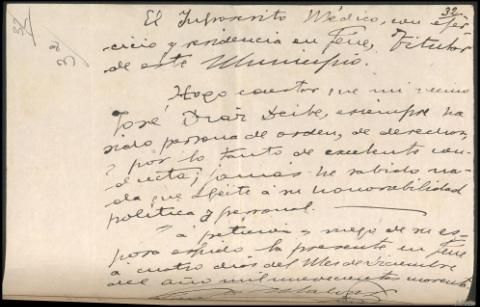 32
32
32
El Infrascrito Médico, con ejer-
cicio y residencia en Fene, Titular
de este Municipio.
Hago constar que mi vecino
José Díaz Deibe, siempre ha
sido persona de orden, de derechas,
y por lo tanto de excelente con-
ducta; jamás he sabido na-
da que afecte a su honorabilidad
política y personal.
Y a petición y ruego de su es-
posa expido la presente en Fene
a cuatro días del Mes de Diciembre
del año mil novecientos